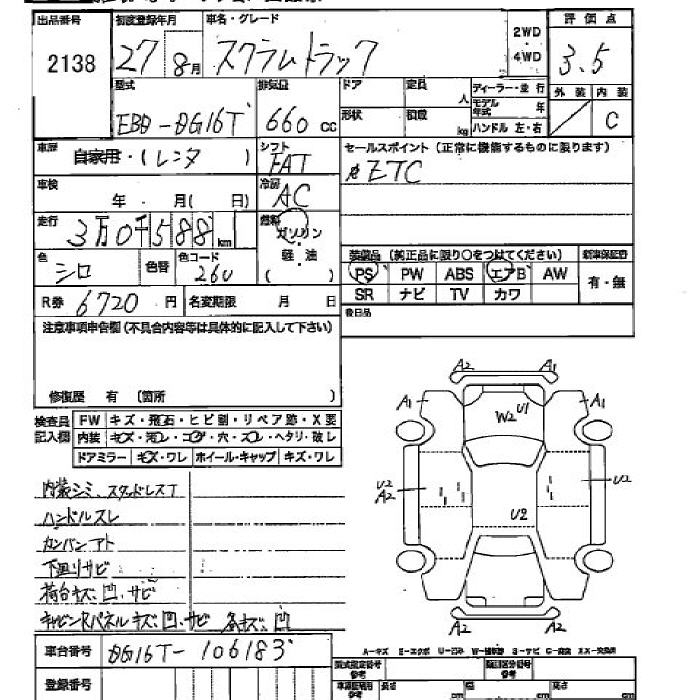 出品番号 初度登録年月 車名・グレード 評価点
2138 27 8月 スクラムトラック 2WD 4WD 3.5
型式 排気量 ドア 定員 人 ディーラー・並行 外装 内装
EBD-DG16T 660cc 形状 積載 kg モデル年式 年 C
ハンドル 左・右
車歴 自家用・(レンタ) シフト FAT セールスポイント(正常に機能するものに限ります)
車検 年・月(日) 冷房 AC ETC
走行 3万0千588km 燃料 ガソリン・軽油 ( )
装備品(純正品に限り○をつけてください) 新車保証書
色 シロ 色替 色コード 26U PS PW ABS エアB AW 有・無
R券 6720円 名変期限 月 日 SR ナビ TV カワ
注意事項申告欄(不具合内容等は具体的に記入して下さい) 後日品
修復歴 有 (箇所 )
検査員記入欄 FW キズ・飛石・ヒビ割・リペア跡・X要
内装 キズ・汚レ・コゲ・穴・スレ・ヘタリ・破レ
ドアミラー キズ・ワレ ホイール・キャップ キズ・ワレ
A2 A1
A1 W2 U1 A1
U2 A2 U2
U2
A2 A2
内装シミ、スタッドレスT
ハンドルスレ
カンバンアト
下回リサビ
荷台キズ、凹、サビ
キャビンRパネルキズ、凹、サビ 各キズ、凹
車台番号 DG16T-106183
登録番号
A-キズ E-エクボ U-凹み W-補修跡 S-サビ C-腐食 XX-交換済
型式指定番号 参考 類別区分番号 参考
車検証明用 参考 長さ cm 幅 cm 高さ cm